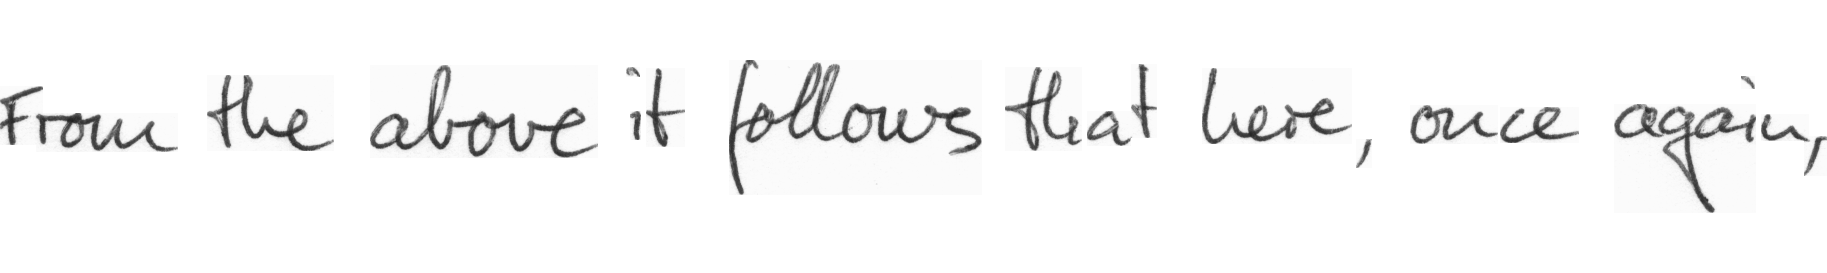 From the above it follows that here, once again,